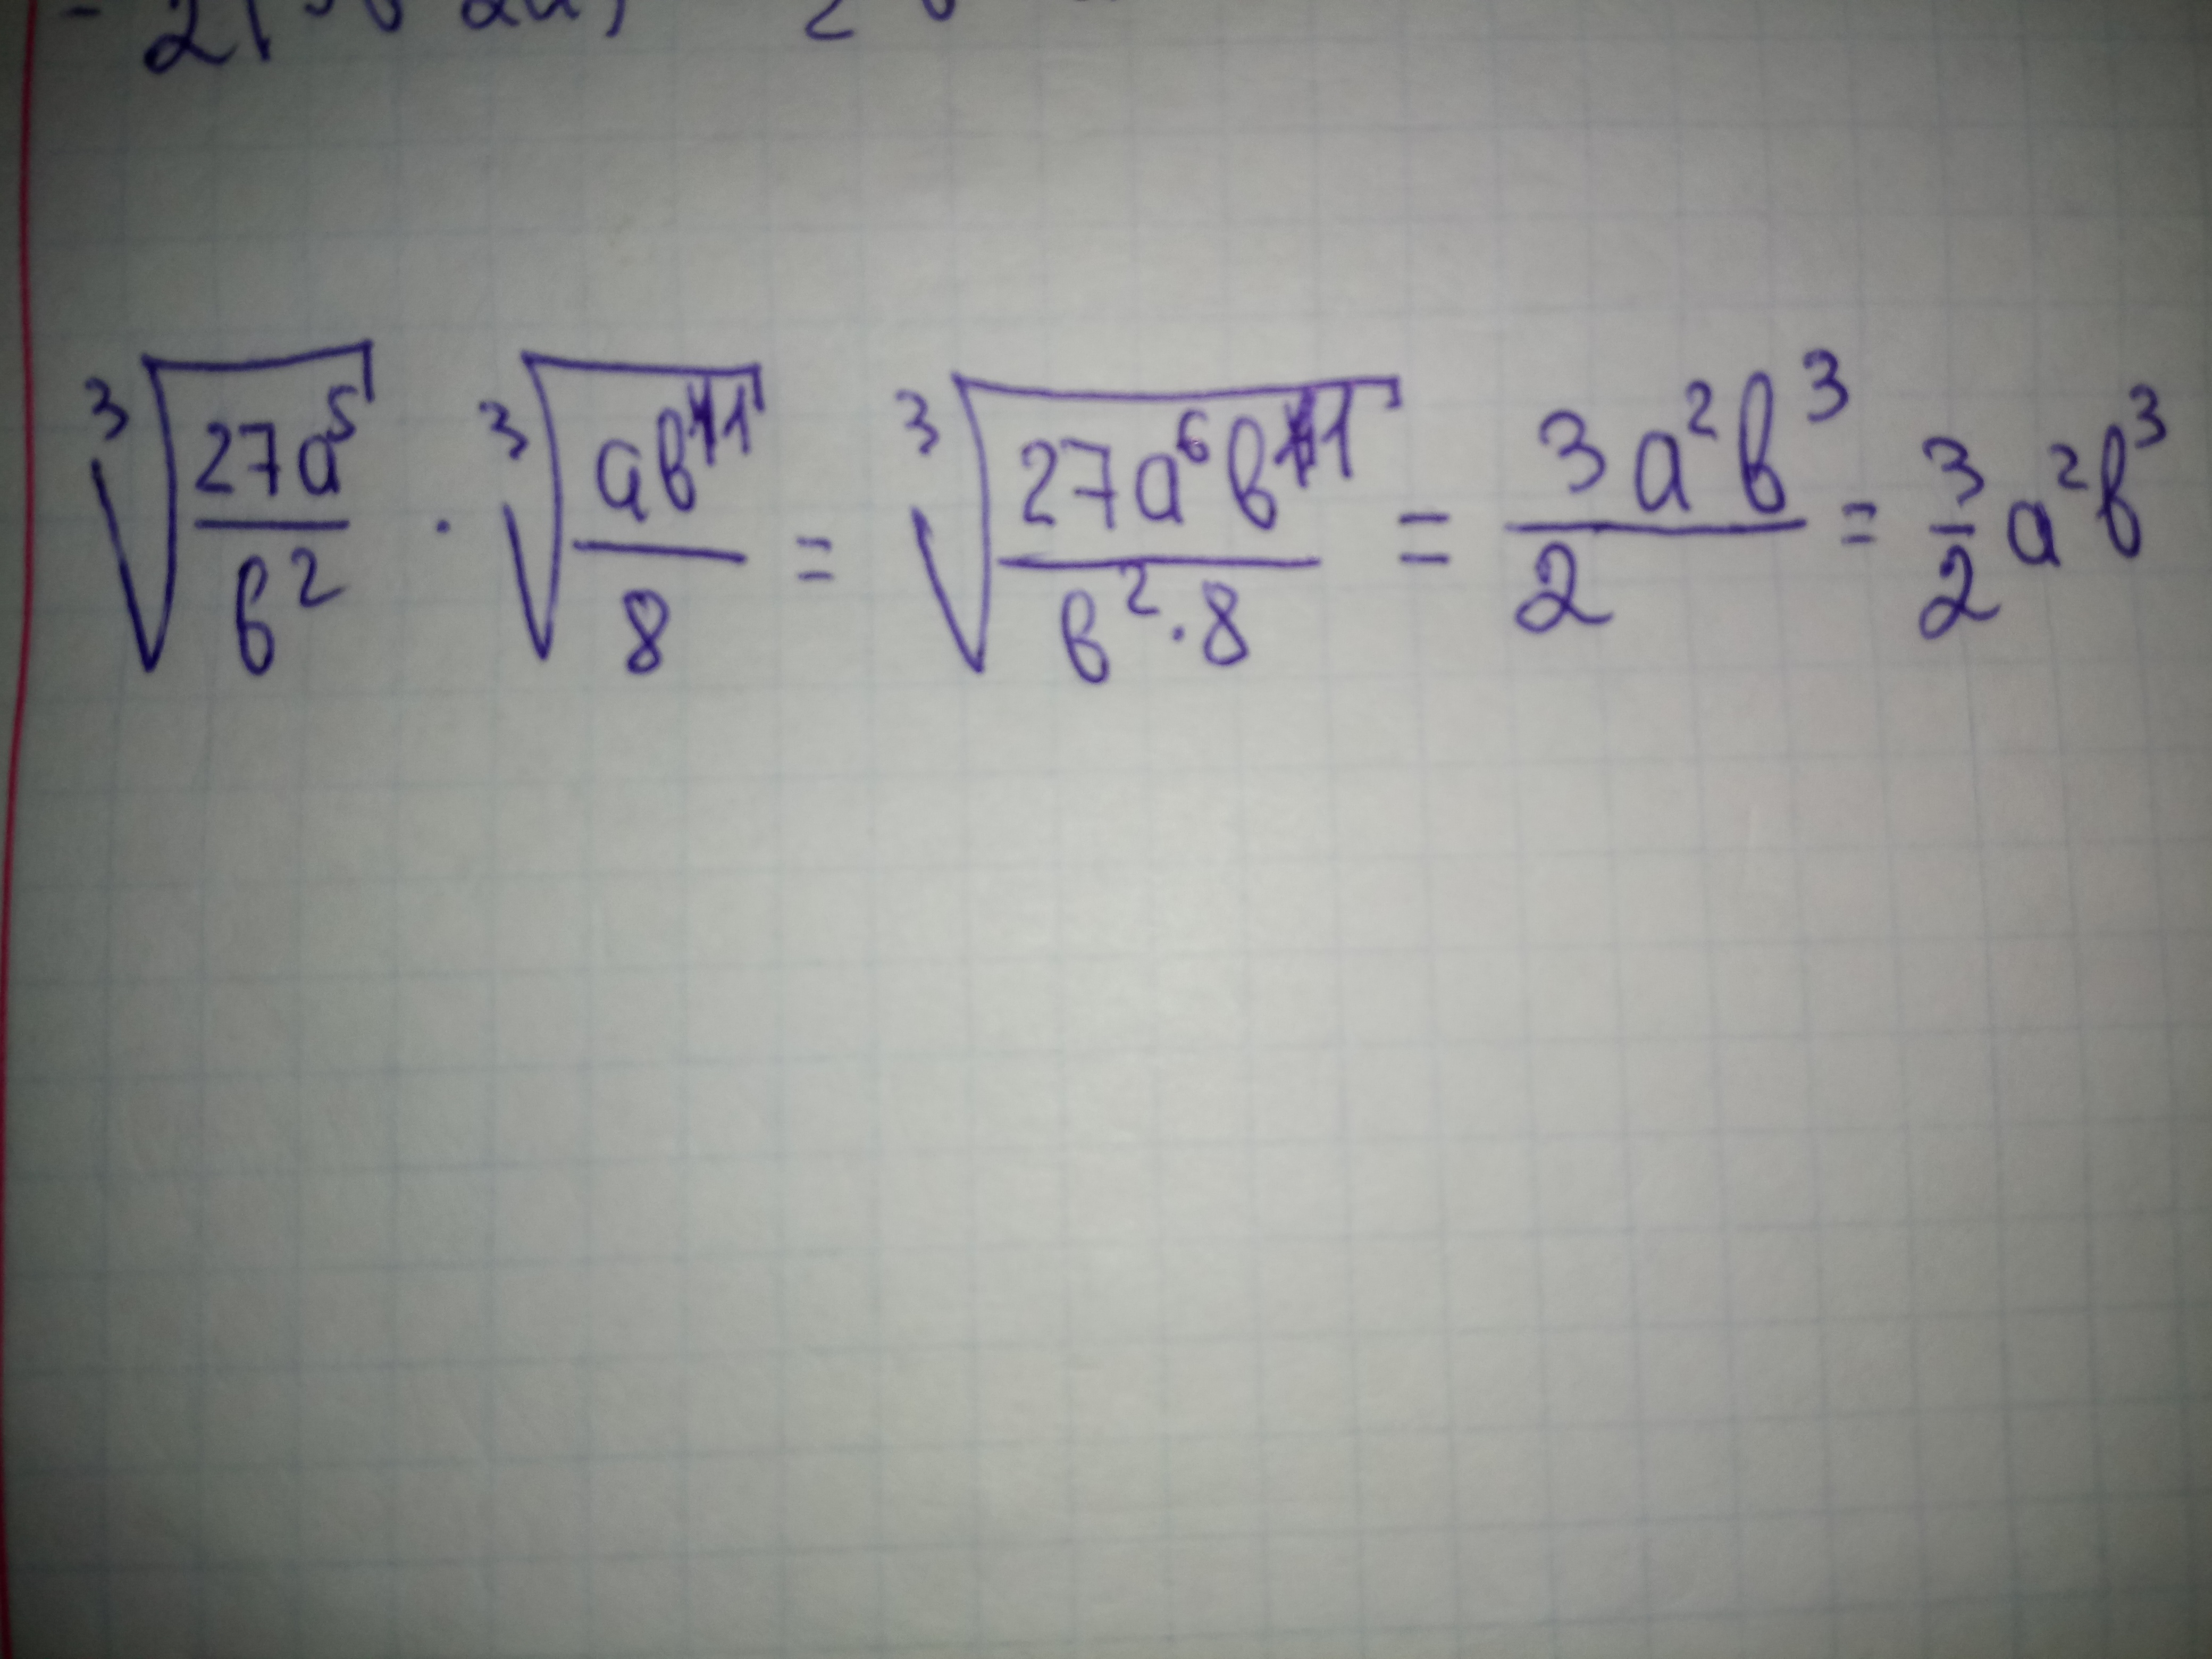 ∛(27a⁵/b²) · ∛(ab¹¹/8) = ∛(27a⁶b¹¹/(b²·8)) = 3a²b³/2 = 3/2 a²b³